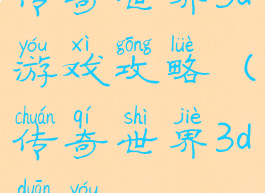 传奇世界3d
yóu xì gōng lüè
游戏攻略（
chuán qí shì jiè
传奇世界3d
duān yóu